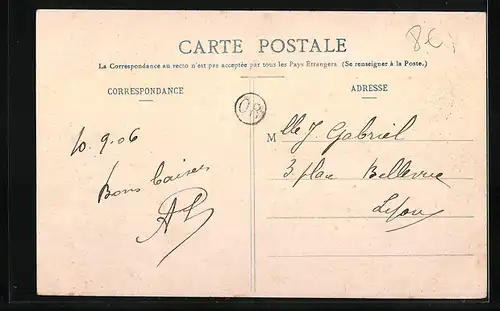 8€
CARTE POSTALE
La Correspondance au recto n'est pas acceptée par tous les Pays Étrangers (Se renseigner à la Poste.)
CORRESPONDANCE
ADRESSE
OR
10.9.06
Bons baisers
AL
Mlle J Gabriel
3 place Bellevue
Lyon